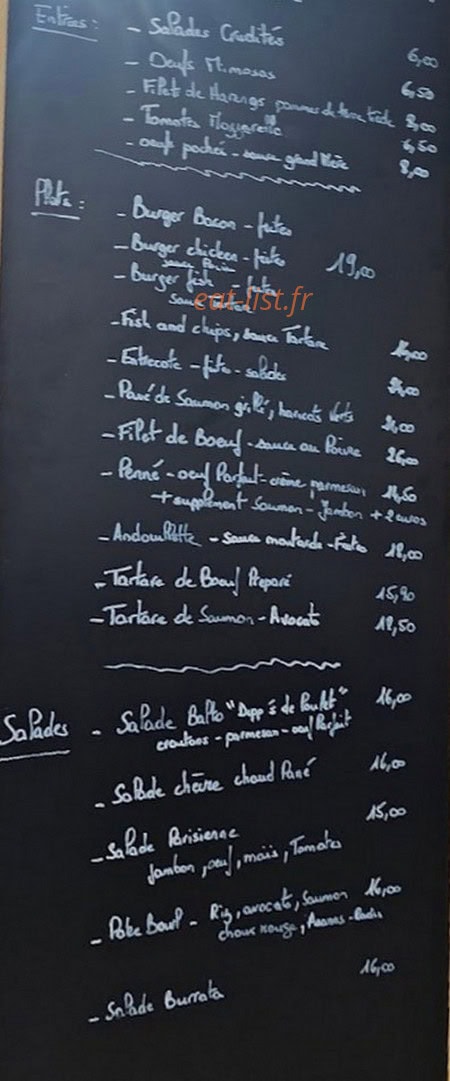 Entrées :
- Salades Crudités 6,00
- Oeufs Mimosas 6,50
- Filet de Harengs pommes de terre tiède 8,00
- Tomates Mozzarella 6,50
- oeufs pochés - sauce grand Mère 8,00
Plats :
- Burger Bacon - frites
- Burger chicken - frites 19,00
- Burger fish - frites
sauce
eat-list.fr
- Fish and chips, sauce Tartare
- Entrecote - frites - salades
- Pavé de Saumon grillé, haricots verts
- Filet de Boeuf - sauce au Poivre 26,00
- Penné - oeuf Parfait - crème, parmesan
+ supplément Saumon - Jambon + 2 euros
- Andouillette - sauce moutarde - Frites 18,00
- Tartare de Boeuf Preparé 15,90
- Tartare de Saumon - Avocats 18,50
Salades
- Salade Balto "de Poulet" 16,00
croutons - parmesan - oeuf Parfait
- Salade chèvre chaud Pané 16,00
- Salade Parisienne 15,00
Jambon, oeuf, maïs, Tomates
- Poke Bowl - Riz, avocats, Saumon 16,00
choux rouge, Ananas - Radis
- Salade Burrata 16,00